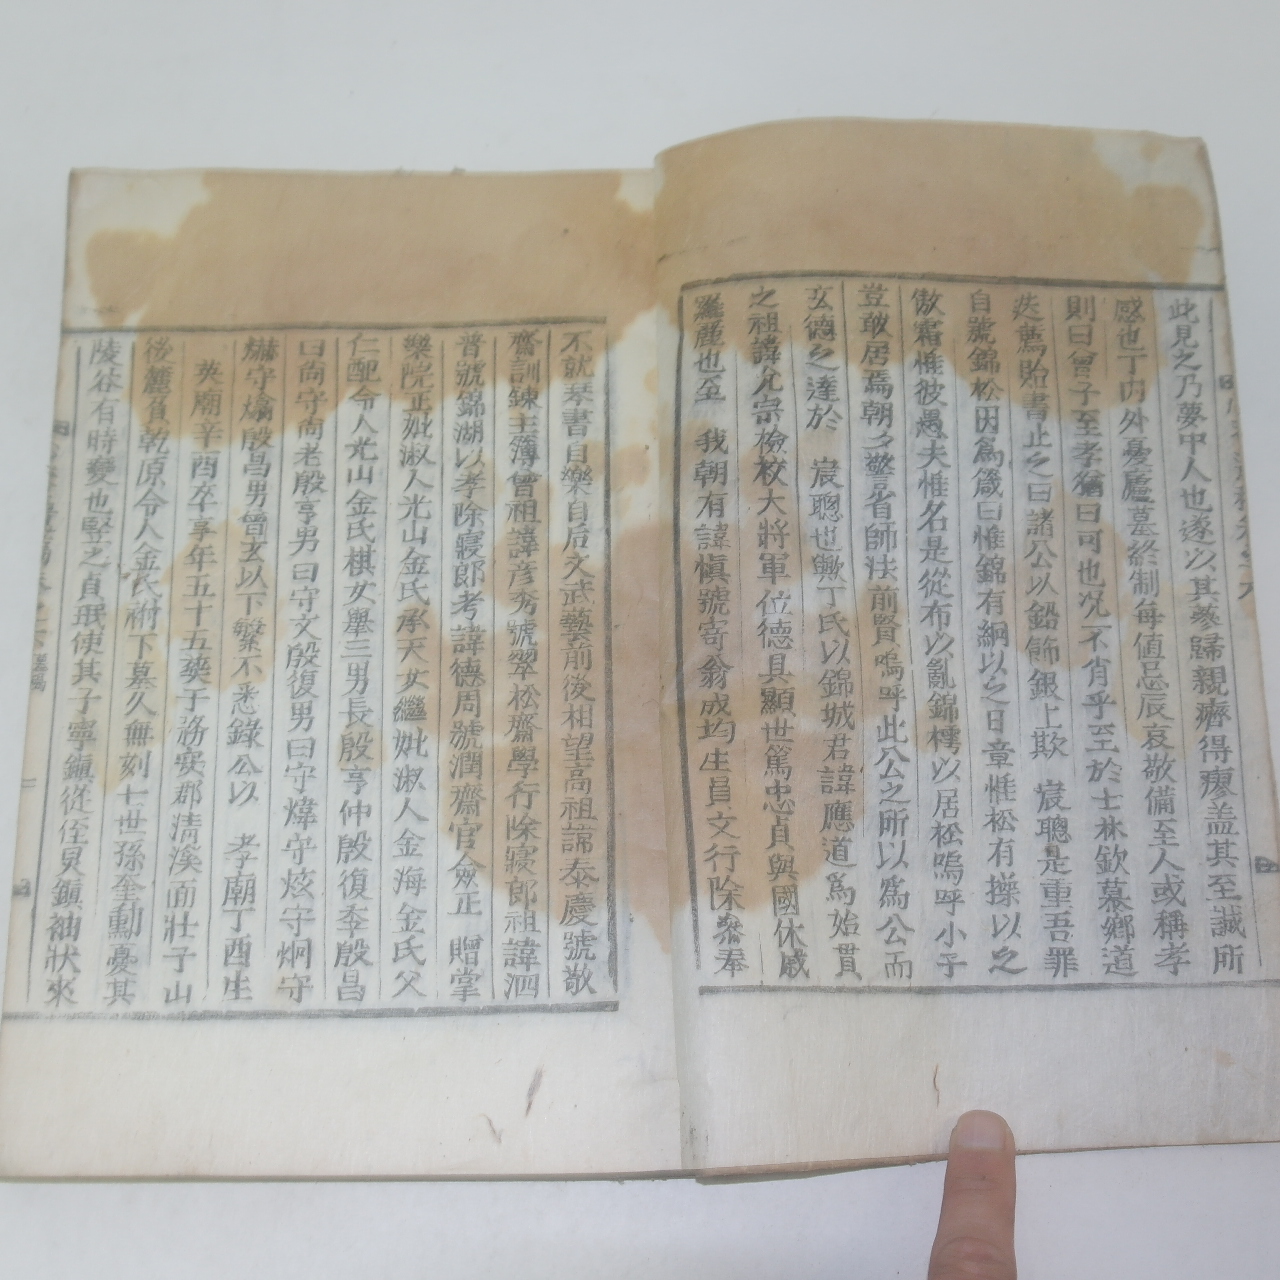 此見之乃夢中人也遂以其蔘歸親癠得瘳盖其至誠所
感也丁內外憂廬墓終制每値忌辰哀敬備至人或稱孝
則曰曾子至孝猶曰可也况不肖乎至於士林欽慕鄕道
迭薦貽書止之曰諸公以鉛餙銀上欺 宸聰是重吾罪
自號錦松因爲箴曰惟錦有絅以之日章惟松有操以之
傲霜惟彼愚夫惟名是從布以亂錦樗以居松嗚呼小子
豈敢居焉朝夕警省師法前賢嗚呼此公之所以爲公而
玄德之達於 宸聰也歟丁氏以錦城君諱應道爲始貫
之祖諱允宗檢校大將軍位德具顯世篤忠貞與國休戚
羅麗也至 我朝有諱愼號寄翁成均生員文行除參奉
不就琴書自樂自后文武藝前後相望高祖諱泰慶號敬
齋訓鍊主簿曾祖諱彦秀號翠松齋學行除寢郞祖諱泗
普號錦湖以孝除寢郞考諱德周號潤齋官僉正 贈掌
樂院正妣淑人光山金氏承天女繼妣淑人金海金氏父
仁配令人光山金氏棋女擧三男長殷亨仲殷復季殷昌
曰尙守尙老殷亨男曰守文殷復男曰守煒守炫守炯守
爀守熽殷昌男曾玄以下繁不悉錄公以 孝廟丁酉生
英廟辛酉卒享年五十五葬于務安郡淸溪面壯子山
後麓負乾原令人金氏祔下墓久無刻七世孫奎勳憂其
陵谷有時變也竪之貞珉使其子寧鎭從侄炅鎭袖狀來